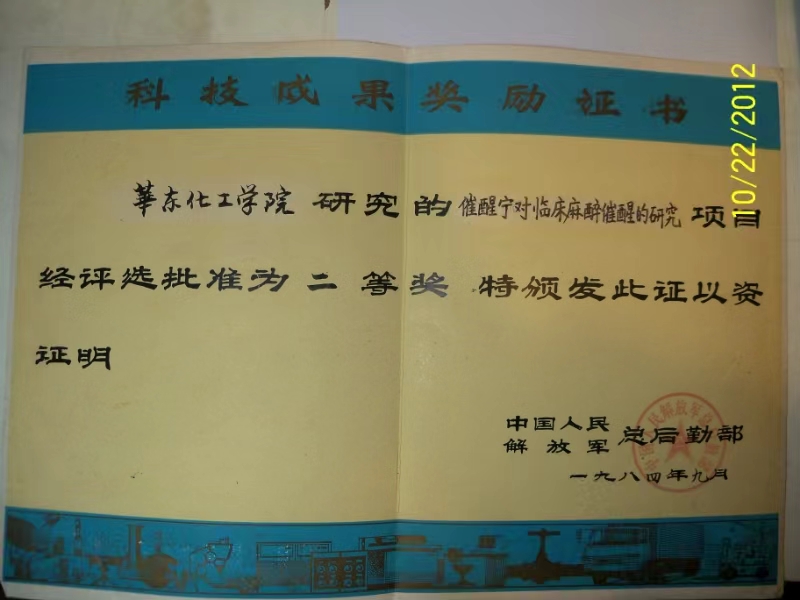 科技成果奖励证书
華东化工学院 研究的 催醒宁对临床麻醉催醒的研究 项目
经评选批准为 二 等奖 特颁发此证以资
证明
中国人民
解放军 总后勤部
一九八四年九月
10/22/2012